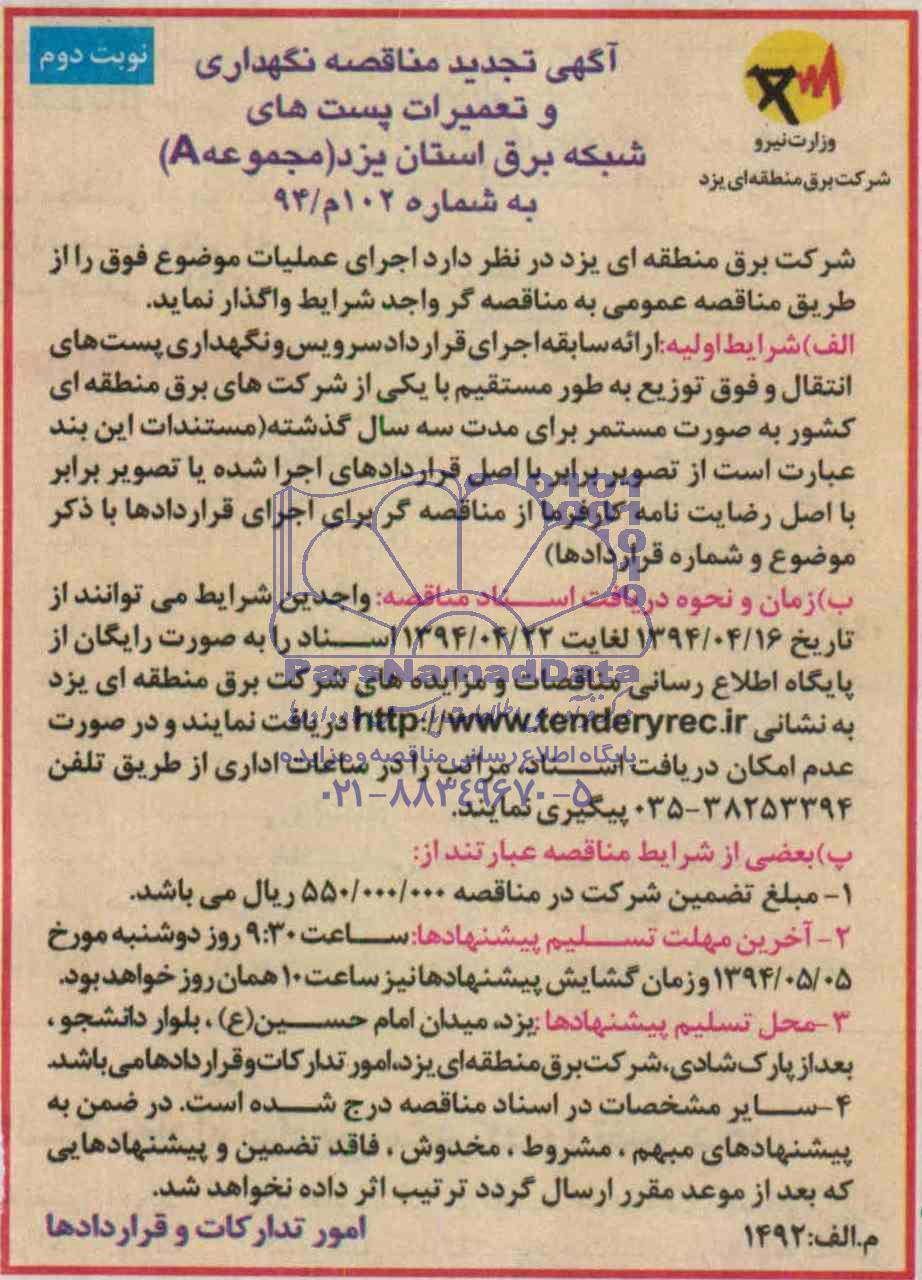 نوبت دوم
آگهی تجدید مناقصه نگهداری
و تعمیرات پست های
شبکه برق استان یزد(مجموعهA)
به شماره ۱۰۲م/۹۴
وزارت نیرو
شرکت برق منطقه ای یزد
شرکت برق منطقه ای یزد در نظر دارد اجرای عملیات موضوع فوق را از
طریق مناقصه عمومی به مناقصه گر واجد شرایط واگذار نماید.
الف)شرایط اولیه:ارائه سابقه اجرای قرارداد سرویس و نگهداری پست های
انتقال و فوق توزیع به طور مستقیم با یکی از شرکت های برق منطقه ای
کشور به صورت مستمر برای مدت سه سال گذشته(مستندات این بند
عبارت است از تصویر برابر با اصل قراردادهای اجرا شده یا تصویر برابر
با اصل رضایت نامه کارفرما از مناقصه گر برای اجرای قراردادها با ذکر
موضوع و شماره قراردادها)
ب)زمان و نحوه دریافت اسناد مناقصه: واجدین شرایط می توانند از
تاریخ ۱۳۹۴/۰۴/۱۶ لغایت ۱۳۹۴/۰۴/۲۲ اسناد را به صورت رایگان از
ParsNamadData
پایگاه اطلاع رسانی مناقصات و مزایده های شرکت برق منطقه ای یزد
به نشانی http://www.tenderyrec.ir دریافت نمایند و در صورت
پایگاه اطلاع رسانی مناقصه و مزایده
عدم امکان دریافت اسناد، مراتب را در ساعات اداری از طریق تلفن
۰۲۱-۸۸۳۴۹۶۷۰-۵
۰۳۵-۳۸۲۵۳۳۹۴ پیگیری نمایند.
پ)بعضی از شرایط مناقصه عبارتند از:
۱- مبلغ تضمین شرکت در مناقصه ۵۵۰/۰۰۰/۰۰۰ ریال می باشد.
۲- آخرین مهلت تسلیم پیشنهادها:ساعت ۹:۳۰ روز دوشنبه مورخ
۱۳۹۴/۰۵/۰۵ و زمان گشایش پیشنهادها نیز ساعت ۱۰ همان روز خواهد بود.
۳-محل تسلیم پیشنهادها:یزد، میدان امام حسین(ع) ، بلوار دانشجو ،
بعد از پارک شادی، شرکت برق منطقه ای یزد، امور تدارکات و قراردادها می باشد.
۴-سایر مشخصات در اسناد مناقصه درج شده است. در ضمن به
پیشنهادهای مبهم ، مشروط ، مخدوش ، فاقد تضمین و پیشنهادهایی
که بعد از موعد مقرر ارسال گردد ترتیب اثر داده نخواهد شد.
م.الف:۱۴۹۲
امور تدارکات و قراردادها